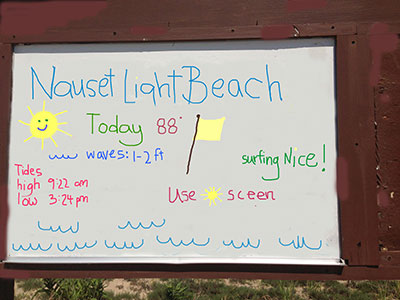 Nauset Light Beach
Today 88°
waves: 1-2 ft
surfing Nice!
Tides
high 9:22 am
low 3:24 pm
Use sceen